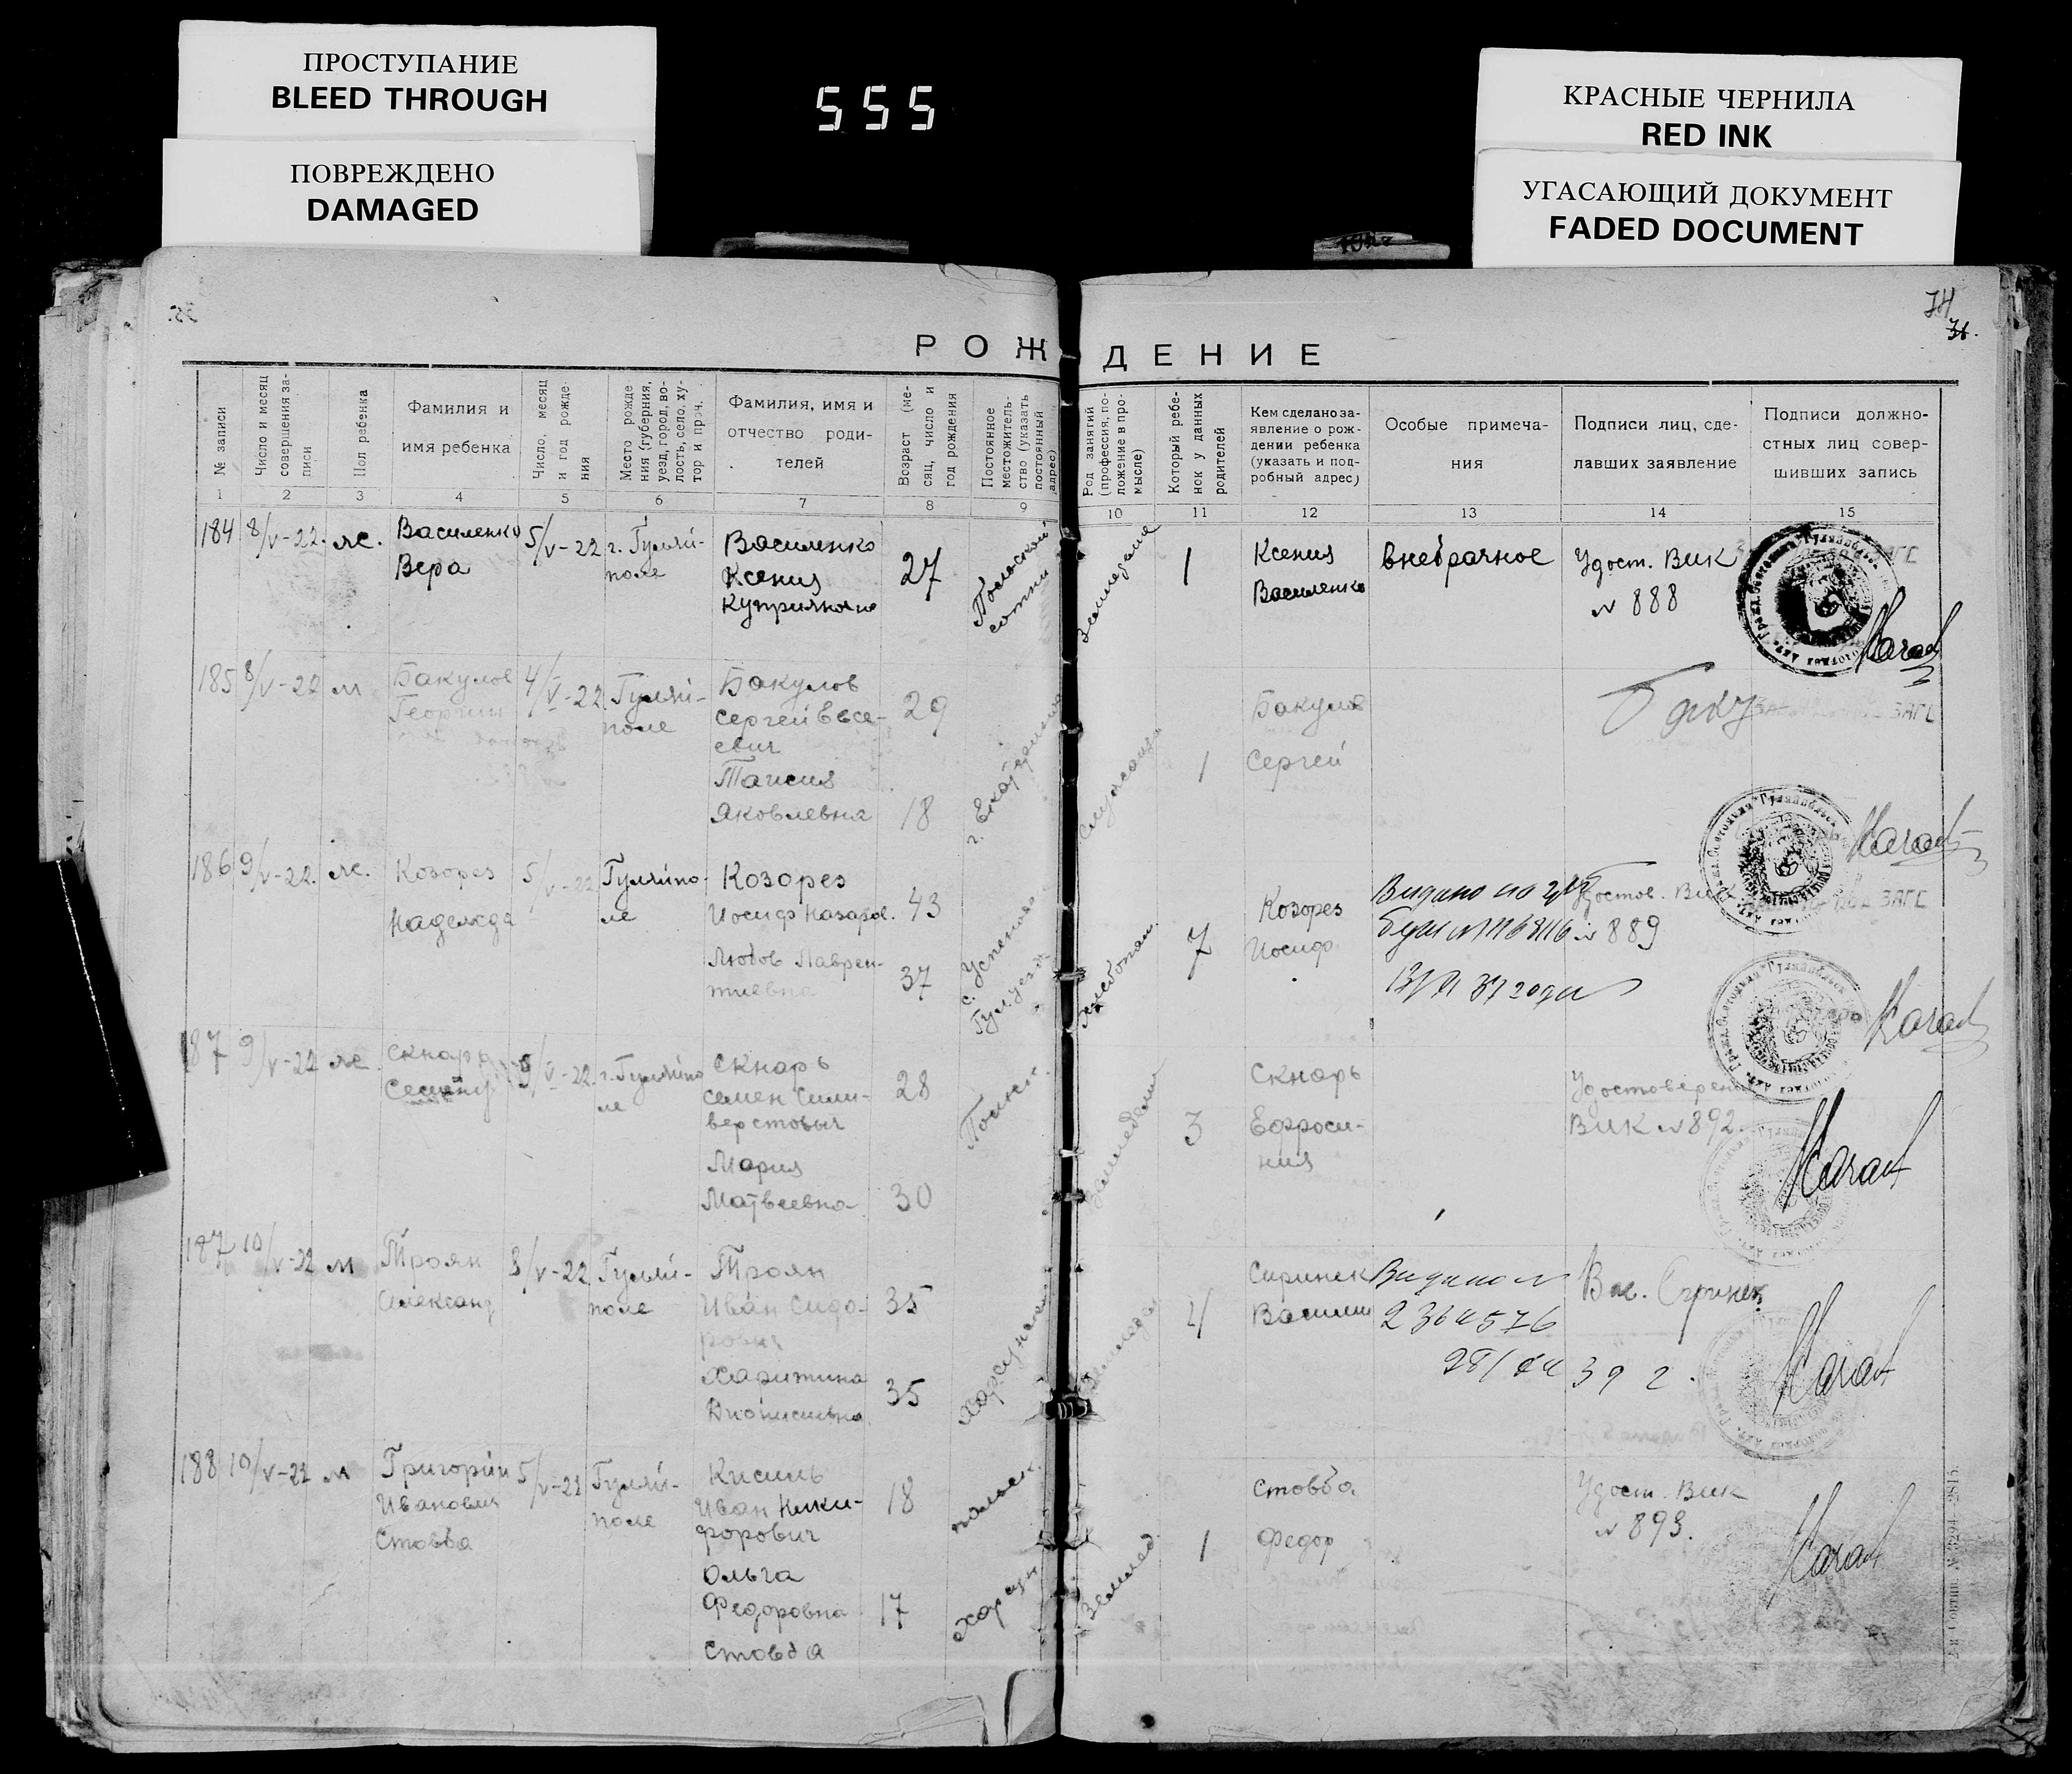 ПРОСТУПАНИЕ
BLEED THROUGH
ПОВРЕЖДЕНО
DAMAGED
555
КРАСНЫЕ ЧЕРНИЛА
RED INK
УГАСАЮЩИЙ ДОКУМЕНТ
FADED DOCUMENT
74
РОЖДЕНИЕ
№ записи
Число и месяц
совершения за-
писи
Пол ребенка
Фамилия и
имя ребенка
Число, месяц
и год рожде-
ния
Место рожде
ния (губерния,
уезд, город, во-
лость, село, ху-
тор и проч.
Фамилия, имя и
отчество роди-
телей
Возраст (ме-
сяц, число и
год рождения
Постоянное
местожитель-
ство (указать
постоянный
адрес)
Род занятий
(профессия, по-
ложение в про-
мысле)
Который ребе-
нок у данных
родителей
Кем сделано за-
явление о рож-
дении ребенка
(указать и под-
робный адрес)
Особые примеча-
ния
Подписи лиц, сде-
лавших заявление
Подписи должно-
стных лиц совер-
шивших запись
1 2 3 4 5 6 7 8 9 10 11 12 13 14 15
184 8/V-22. ж.
Василенко
Вера
5/V-22
г. Гуляй-
поле
Василенко
Ксения
Куприяновна
27
Польской
сотни
1
Ксения
Василенко
внебрачное
Удост. Вик
№ 888
185 8/V-22 м
Бакулов
Георгий
4/V-22
Гуляй-
поле
Бакулов
Сергей Евсе-
евич
Таисия
Яковлевна
29
18
1
Бакулов
Сергей
ЗАГС
186 9/V-22. ж.
Козорез
Надежда
5/V-22
Гуляйпо-
ле
Козорез
Иосиф Назаров.
Любов Лаврен-
тиевна
43
37
с. Успеновка
Гул. уезд
7
Козорез
Иосиф
Удостов. Вик
№ 889
ЗАГС
187 9/V-22 ж
Скнарь
9/V-22.
г. Гуляйпо
ле
Скнарь
Семен Сили-
верстовыч
Мария
Матвеевна
28
30
3
Скнарь
Ефроси-
ния
Удостоверен
ВИК № 892.
187 10/V-22 м
Троян
Александ
8/V-22
Гуляй-
поле
Троян
Иван Сидо-
рович
Харитина
Дионисивна
35
35
4
Сиринек
Васили
Видано №
2364576
392.
188 10/V-22 м
Григорий
Иванович
Стовба
5/V-22
Гуляй-
поле
Кисиль
Иван Ники-
форович
Ольга
Федоровна
Стовба
18
17
Землед
1
Стовба
Федор
Удост. Вик
№ 893.